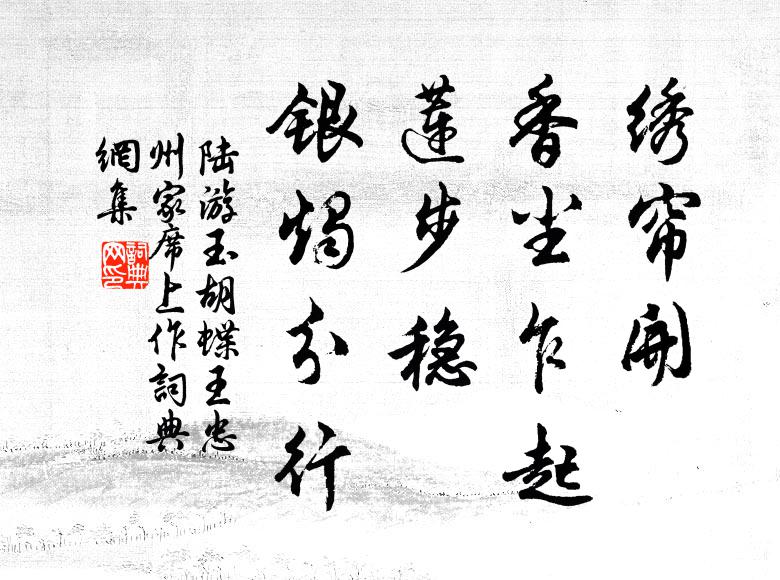 绣帘開
香尘乍起
蓮步稳
銀燭分行
陆游玉胡蝶王忠
州家席上作詞典
網集
詞典
网